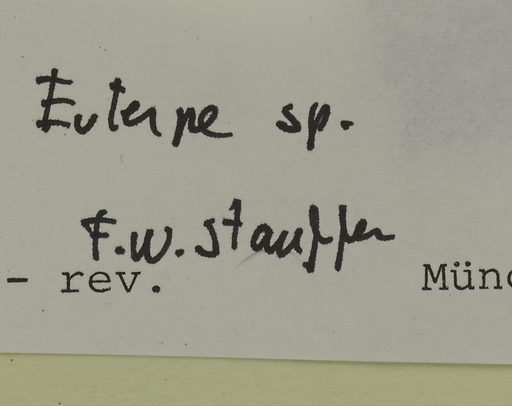 Euterpe sp.
F.W. Stauffer
- rev. Münc